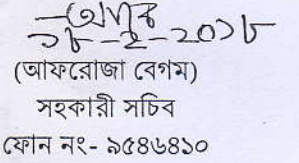 ১৮-২-২০১৮
(আফরোজা বেগম)
সহকারী সচিব
ফোন নং- ৯৫৪৬৪১০